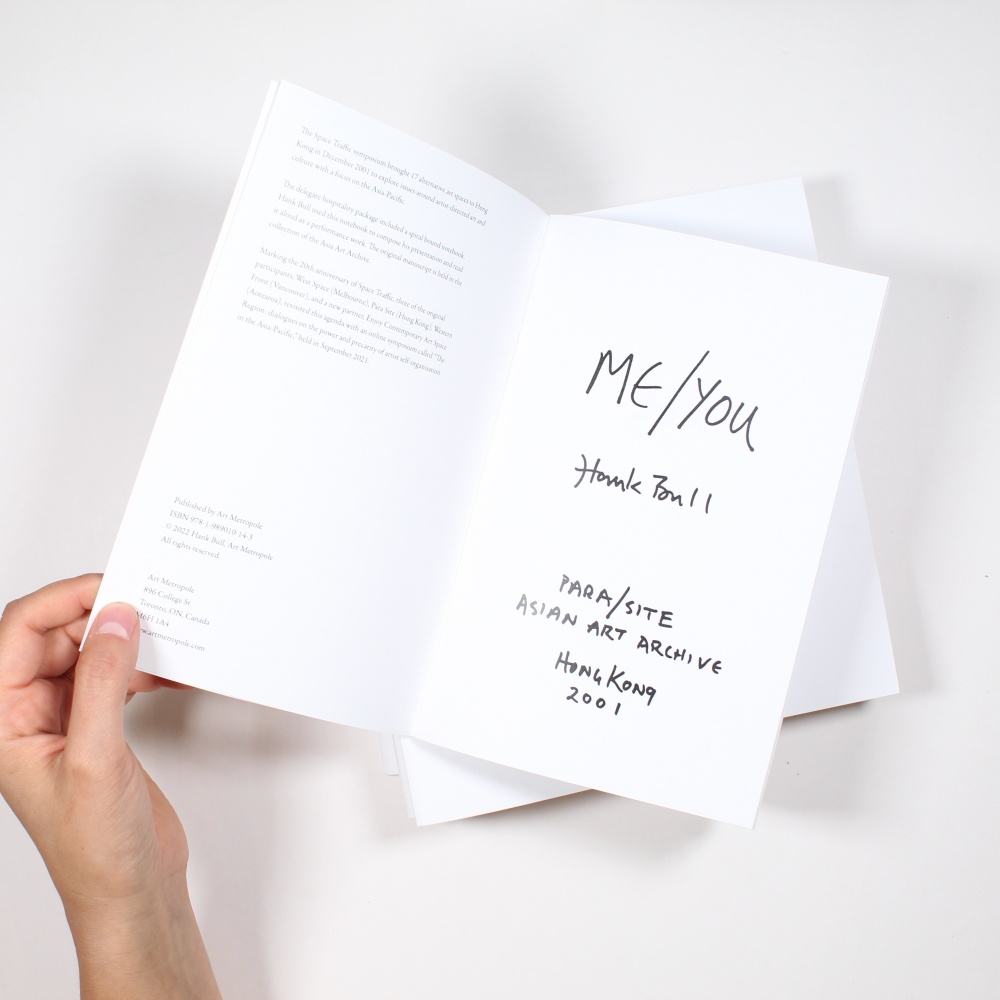 The Space Traffic symposium brought 17 alternative art spaces to Hong
Kong in December 2001 to explore issues around artist-directed art and
culture with a focus on the Asia-Pacific.
The delegate hospitality package included a spiral bound notebook.
Hank Bull used this notebook to compose his presentation and read
it aloud as a performance work. The original manuscript is held in the
collection of the Asia Art Archive.
Marking the 20th anniversary of Space Traffic, three of the original
participants, West Space (Melbourne), Para Site (Hong Kong), Western
Front (Vancouver), and a new partner, Enjoy Contemporary Art Space
(Aotearoa), revisited this agenda with an online symposium called "The
Region, dialogues on the power and precarity of artist self-organisation
in the Asia-Pacific," held in September 2021.
Published by Art Metropole
ISBN 978-1-989010-14-3
© 2022 Hank Bull, Art Metropole
All rights reserved.
Art Metropole
896 College St
Toronto, ON, Canada
M6H 1A4
artmetropole.com
ME/YOU
Hank Bull
PARA/SITE
ASIAN ART ARCHIVE
HONG KONG
2001